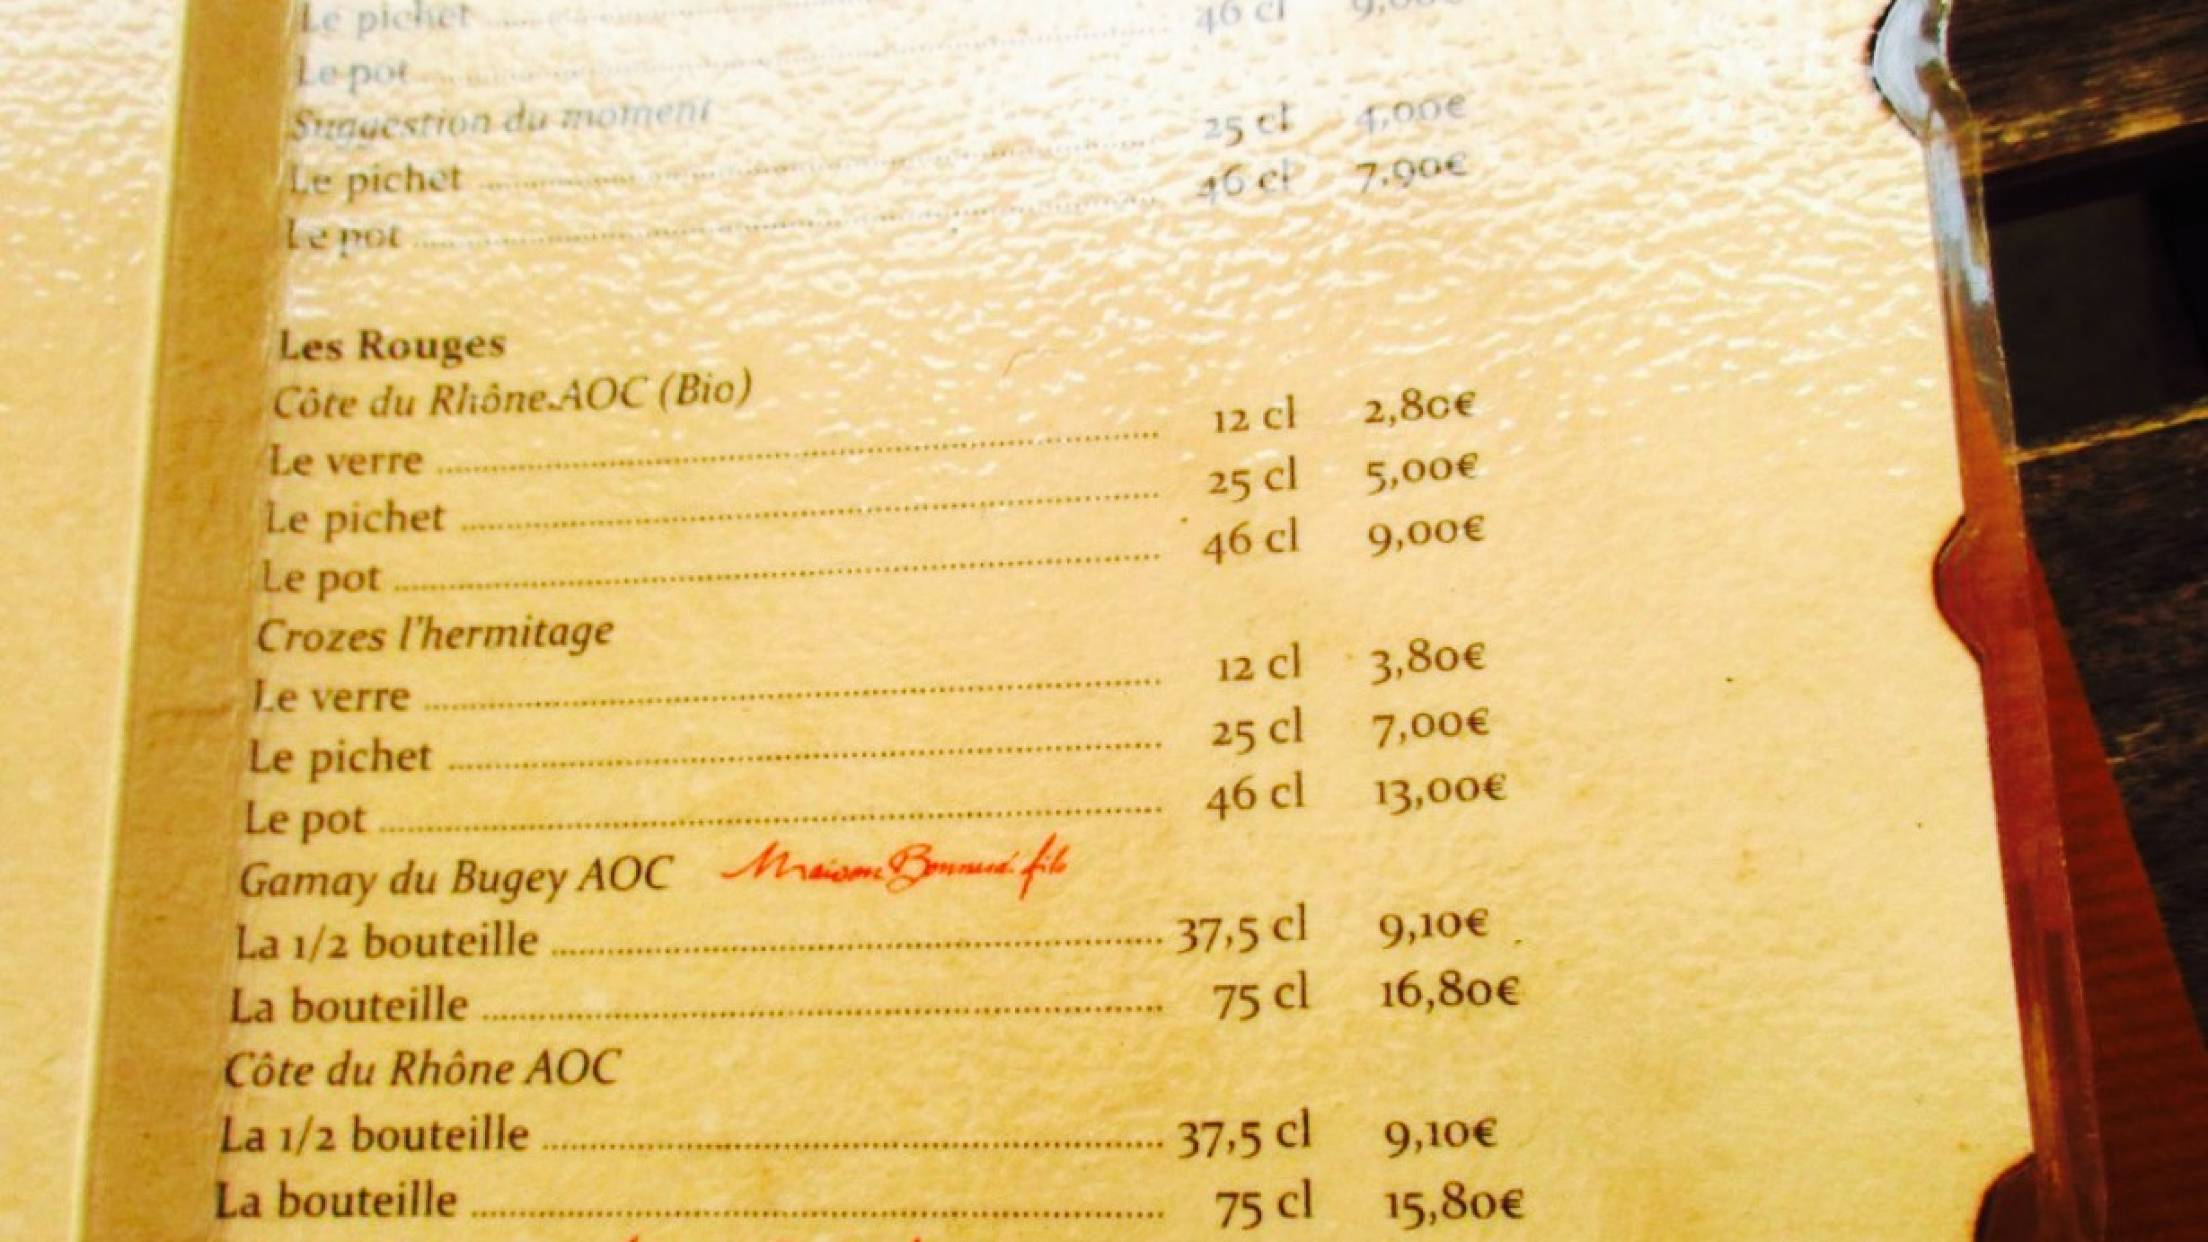 Le pichet 46 cl
Le pot
Suggestion du moment
Le pichet 25 cl 4,00€
Le pot 46 cl 7,90€
Les Rouges
Côte du Rhône AOC (Bio)
Le verre 12 cl 2,80€
Le pichet 25 cl 5,00€
Le pot 46 cl 9,00€
Crozes l'hermitage
Le verre 12 cl 3,80€
Le pichet 25 cl 7,00€
Le pot 46 cl 13,00€
Gamay du Bugey AOC Maison Bonnard fils
La 1/2 bouteille 37,5 cl 9,10€
La bouteille 75 cl 16,80€
Côte du Rhône AOC
La 1/2 bouteille 37,5 cl 9,10€
La bouteille 75 cl 15,80€